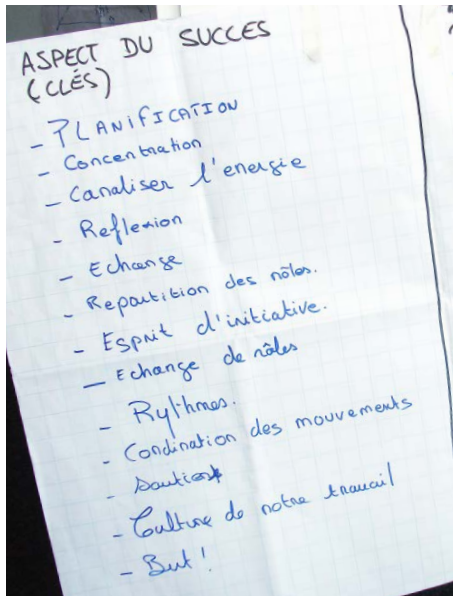 ASPECT DU SUCCES
(CLÉS)
- PLANIFICATION
- Concentration
- Canaliser l'energie
- Reflexion
- Echange
- Repartition des rôles.
- Esprit d'initiative.
- Echange de rôles
- Rythmes.
- Condination des mouvements
- Culture de notre travail
- But !